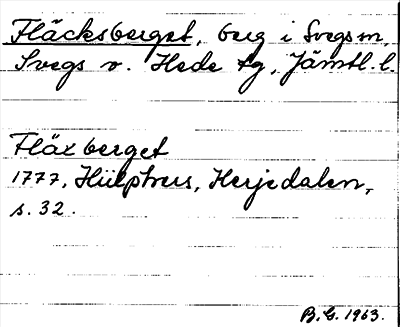 Fläcksberget, berg i Svegs m,
Svegs o. Hede tg, Jämtl. l.
Fläxberget
1777, Hülphers, Herjedalen,
s. 32.
B.G. 1963.